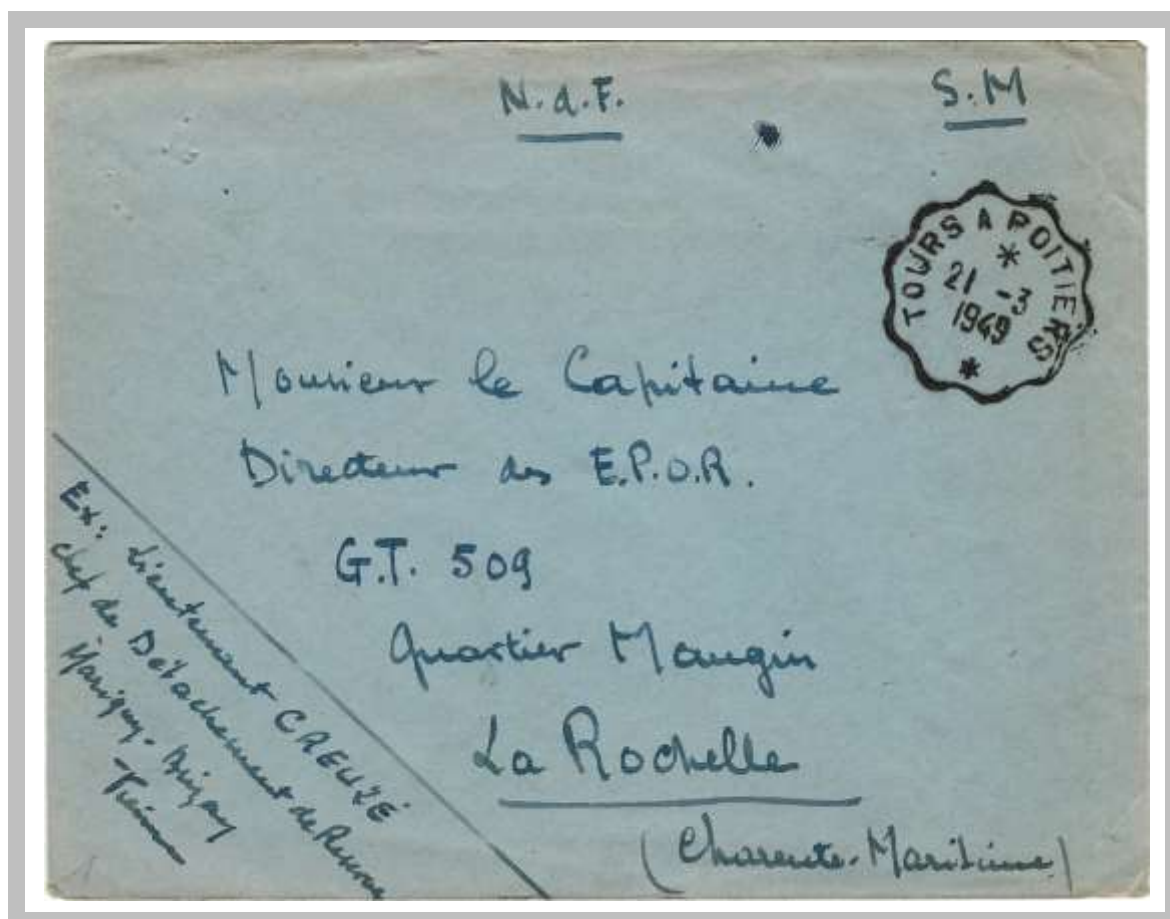 N.d.F.
S.M
TOURS A POITIERS
21 -3
1949
Monsieur le Capitaine
Directeur des E.P.O.R.
G.T. 509
Quartier Mangin
La Rochelle
(Charente-Maritime)
Ex: Lieutenant CREUZÉ
chef de Détachement de
Marigny-Brizay
Vienne